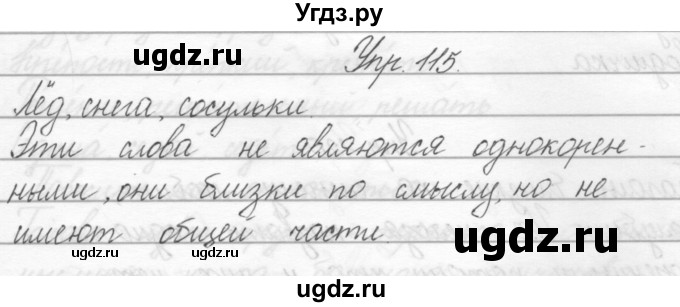 Угдз.ру
ugdz.ru
Упр. 115.
Лёд, снега, сосульки.
Эти слова не являются однокорен-
ными, они близки по смыслу, но не
имеют общей части.
ugdz.ru
ugdz.ru
ugdz.ru
ugdz.ru
ugdz.ru